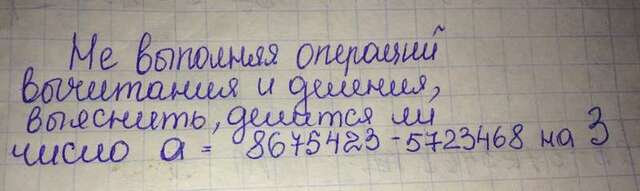 Не выполняя операций
вычитания и деления,
выяснить, делится ли
число a = 8675423 - 5723468 на 3